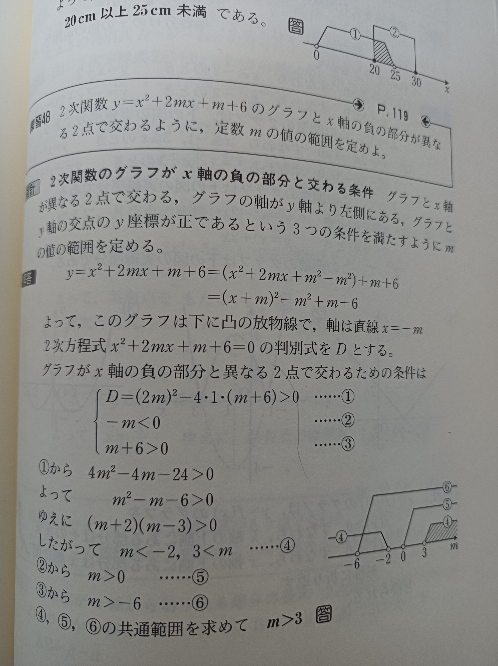 20cm 以上 25cm 未満 である。 答
① ②
0 20 25 30 x
P.119
練習48 2次関数 y=x²+2mx+m+6 のグラフと x 軸の負の部分が異な
る2点で交わるように，定数 m の値の範囲を定めよ。
2次関数のグラフが x 軸の負の部分と交わる条件 グラフと x 軸
が異なる2点で交わる，グラフの軸が y 軸より左側にある，グラフと
y 軸の交点の y 座標が正であるという3つの条件を満たすように m
の値の範囲を定める。
y=x²+2mx+m+6=(x²+2mx+m²−m²)+m+6
=(x+m)²−m²+m−6
よって，このグラフは下に凸の放物線で，軸は直線 x=−m
2次方程式 x²+2mx+m+6=0 の判別式を D とする。
グラフが x 軸の負の部分と異なる2点で交わるための条件は
D=(2m)²−4·1·(m+6)>0 ……①
−m<0 ……②
m+6>0 ……③
①から 4m²−4m−24>0
よって m²−m−6>0
ゆえに (m+2)(m−3)>0
したがって m<−2，3<m ……④
②から m>0 ……⑤
③から m>−6 ……⑥
④，⑤，⑥の共通範囲を求めて m>3 答
⑥
⑤
④ ④
−6 −2 0 3 m